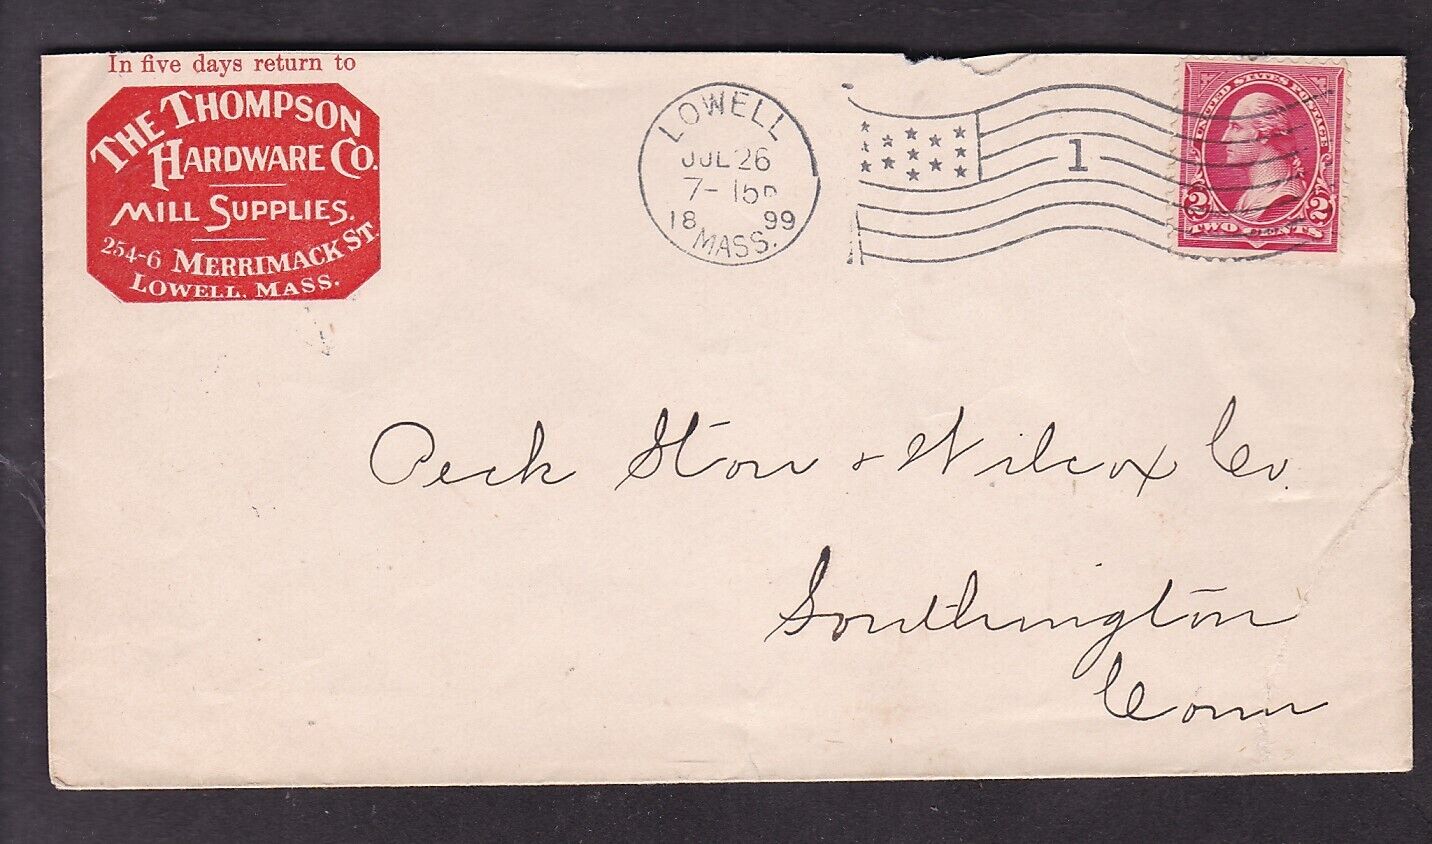 In five days return to
THE THOMPSON
HARDWARE CO.
MILL SUPPLIES.
254-6 MERRIMACK ST.
LOWELL, MASS.
LOWELL
JUL 26
7-15P
18 99
MASS.
1
UNITED STATES POSTAGE
2 2
TWO CENTS
Peck Stow & Wilcox Co.
Southington
Conn